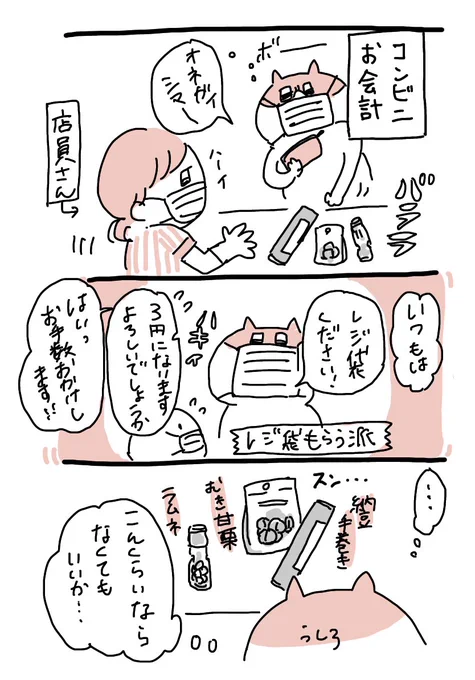 コンビニ
お会計
ボー
オネガイ
シマー
店員さん
ハーイ
バラララ
いつもは
レジ袋
ください!
キッ
3円になります
よろしいでしょうか
はいっ
お手数おかけし
ます!!
レジ袋もらう派
…
スン…
納豆
手巻き
むき甘栗
ラムネ
こんくらいなら
なくても
いいか…
うしろ